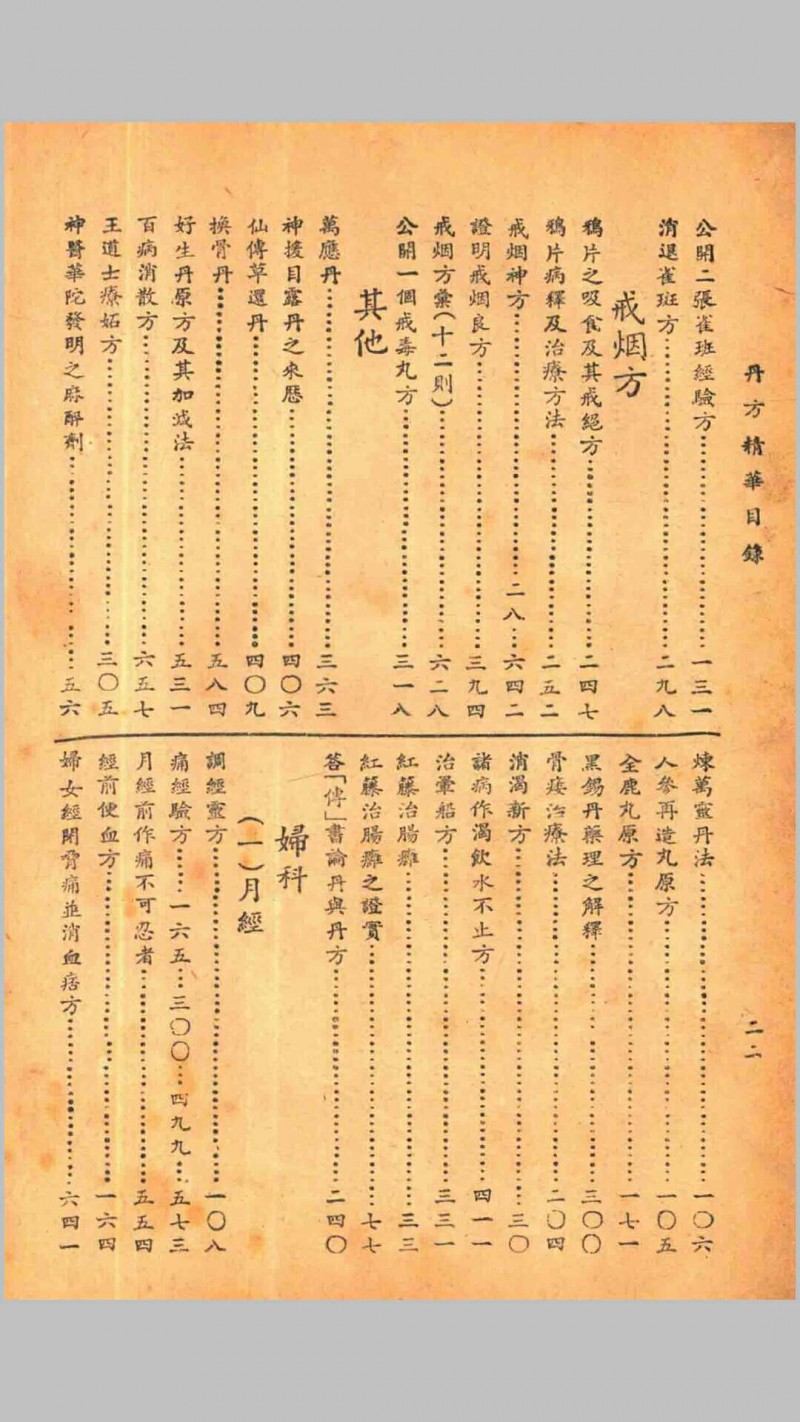 丹方精華目錄
二二
公開二張雀班經驗方……一三一
消退雀斑方……二九八
戒烟方
鴉片之吸食及其戒絕方……二四七
鴉片病釋及治療方法……二五二
戒烟神方……二八…六四二
證明戒烟良方……三九四
戒烟方彙(十二則)……六二八
公開一個戒毒丸方……三一八
其他
萬應丹……三六三
神授目露丹之來歷……四〇六
仙傳草還丹……四〇九
換骨丹……五八四
好生丹原方及其加減法……五三一
百病消散方……六五七
王道士療妬方……三〇五
神醫華陀發明之麻醉劑……五六
煉萬靈丹法……一〇六
人參再造丸原方……一〇五
全鹿丸原方……一七一
黑錫丹藥理之解釋……三〇〇
骨痿治療法……二〇四
消渴新方……三〇
諸病作渴飲水不止方……四一一
治暈船方……三三一
紅藤治腸癰……三三
紅藤治腸癰之證實……七七
答「傳」書論丹與丹方……二四〇
婦科
(一)月經
調經靈方……一〇八
痛經驗方……一六五…三〇〇…四九九…五七三
月經前作痛不可忍者……五五四
經前便血方……一六四
婦女經閉脅痛並消血痞方……六四一